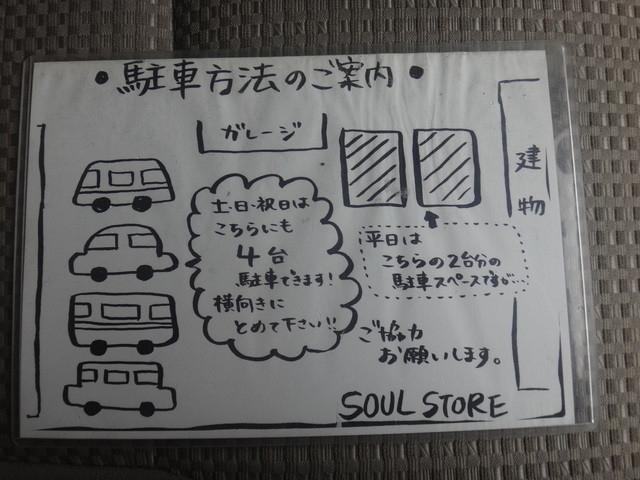 ・駐車方法のご案内・
ガレージ
建物
土・日・祝日は
こちらにも
4台
駐車できます!
横向きに
とめて下さい!!
平日は
こちらの2台分の
駐車スペースですが…
ご協力
お願いします。
SOUL STORE